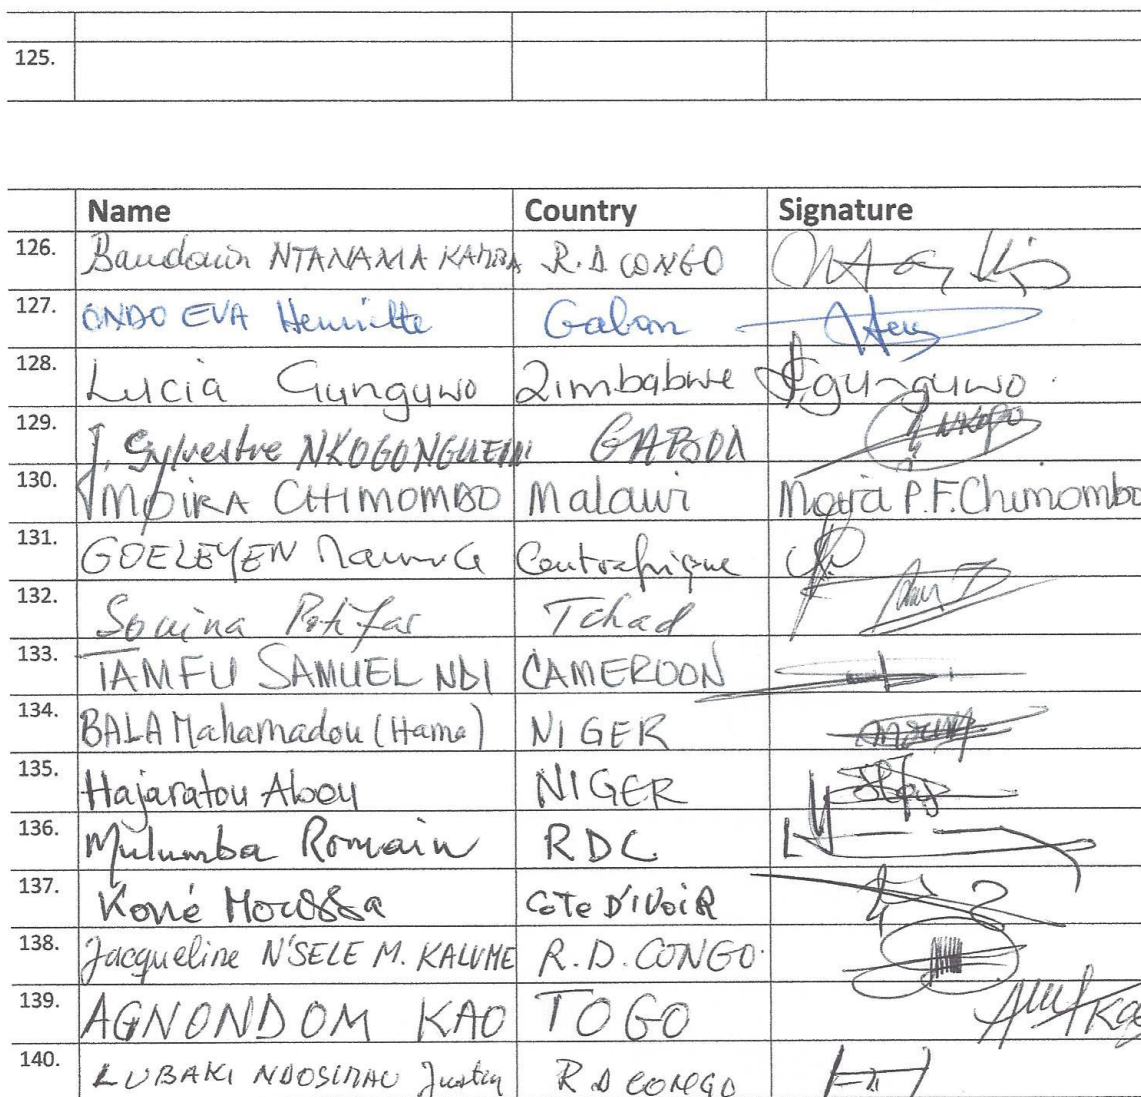 125.
Name Country Signature
126. Baudouin NTANAMA KAMBA R.D CONGO
127. ONDO EVA Henriette Gabon
128. Lucia Gunguwo Zimbabwe gunguwo
129. J. Sylvestre NKOGO NGUEMI GABON NKOGO
130. MOIRA CHIMOMBO Malawi Moira P.F. Chimombo
131. GOELEYEN Maurice Centrafrique
132. Souina Potifar Tchad
133. TAMFU SAMUEL NDI CAMEROON
134. BALA Mahamadou (Hama) NIGER
135. Hajaratou Abou NIGER
136. Mulumba Romain RDC.
137. Koné Moussa COTE D'IVOIR
138. Jacqueline N'SELE M. KALUME R.D. CONGO.
139. AGNONDOM KAO TOGO
140. LUBAKI Justin R D CONGO